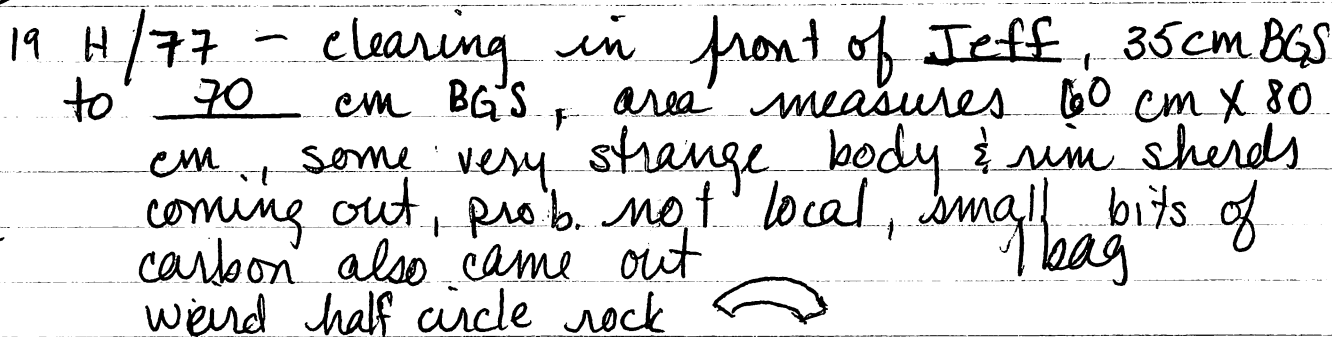 19 H/77 - clearing in front of Jeff, 35cm BGS
to 70 cm BGS, area measures 60 cm X 80
cm, some very strange body & rim sherds
coming out, prob. not local, small bits of
carbon also came out 1 bag
weird half circle rock